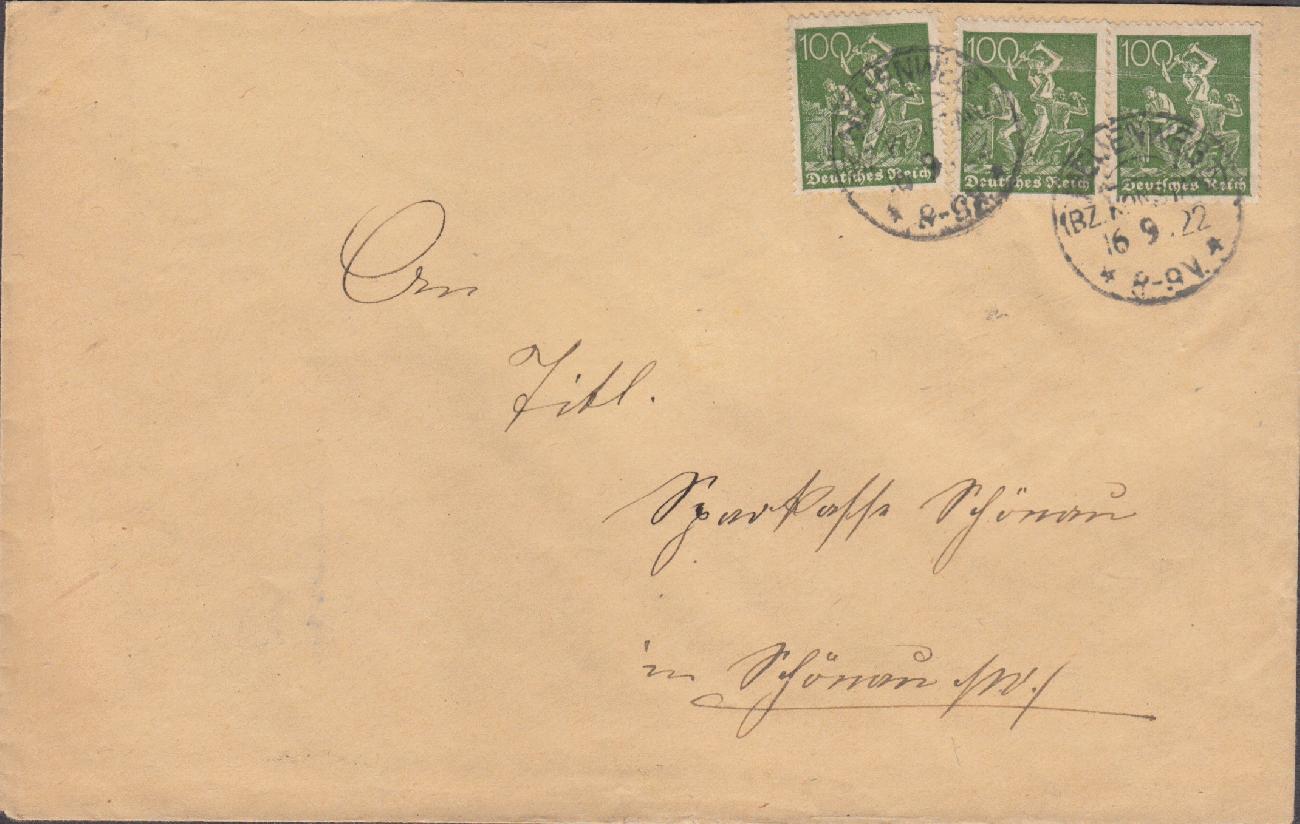 100 100 100
Deutsches Reich Deutsches Reich Deutsches Reich
16 9.22
* 8-9V. *
An
Titl.
Sparkasse Schönau
in Schönau /W./